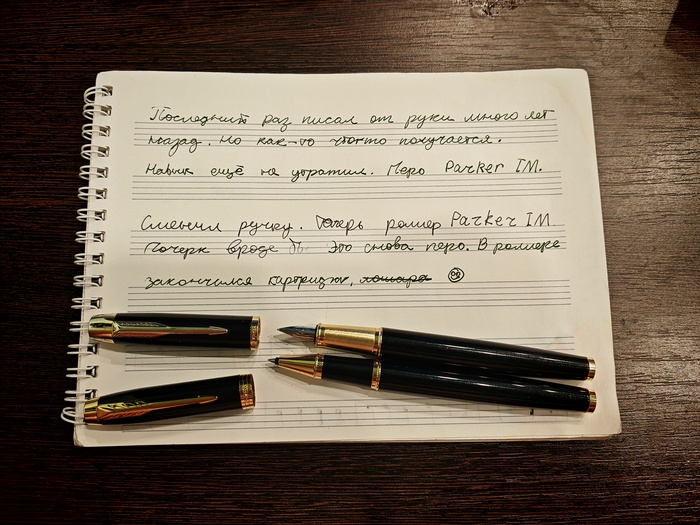 Последний раз писал от руки много лет
назад. Но как-то что-то получается.
Навык ещё не утратил. Перо Parker IM.
Сменил ручку. Теперь роллер Parker IM
Почерк вроде Это снова перо. В роллере
закончился картридж,